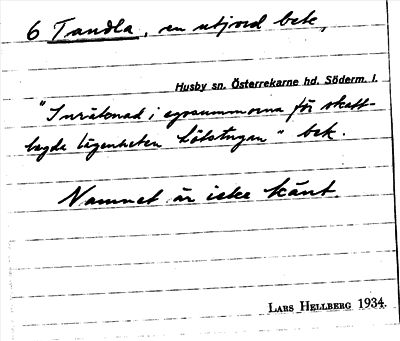 6 Tandla, en utjord bek,
Husby sn. Österrekarne hd. Söderm. l.
"Inräknad i egosummorna för skatt-
lagda lägenheten Lötstugan" bek.
Namnet är icke känt.
LARS HELLBERG 1934.